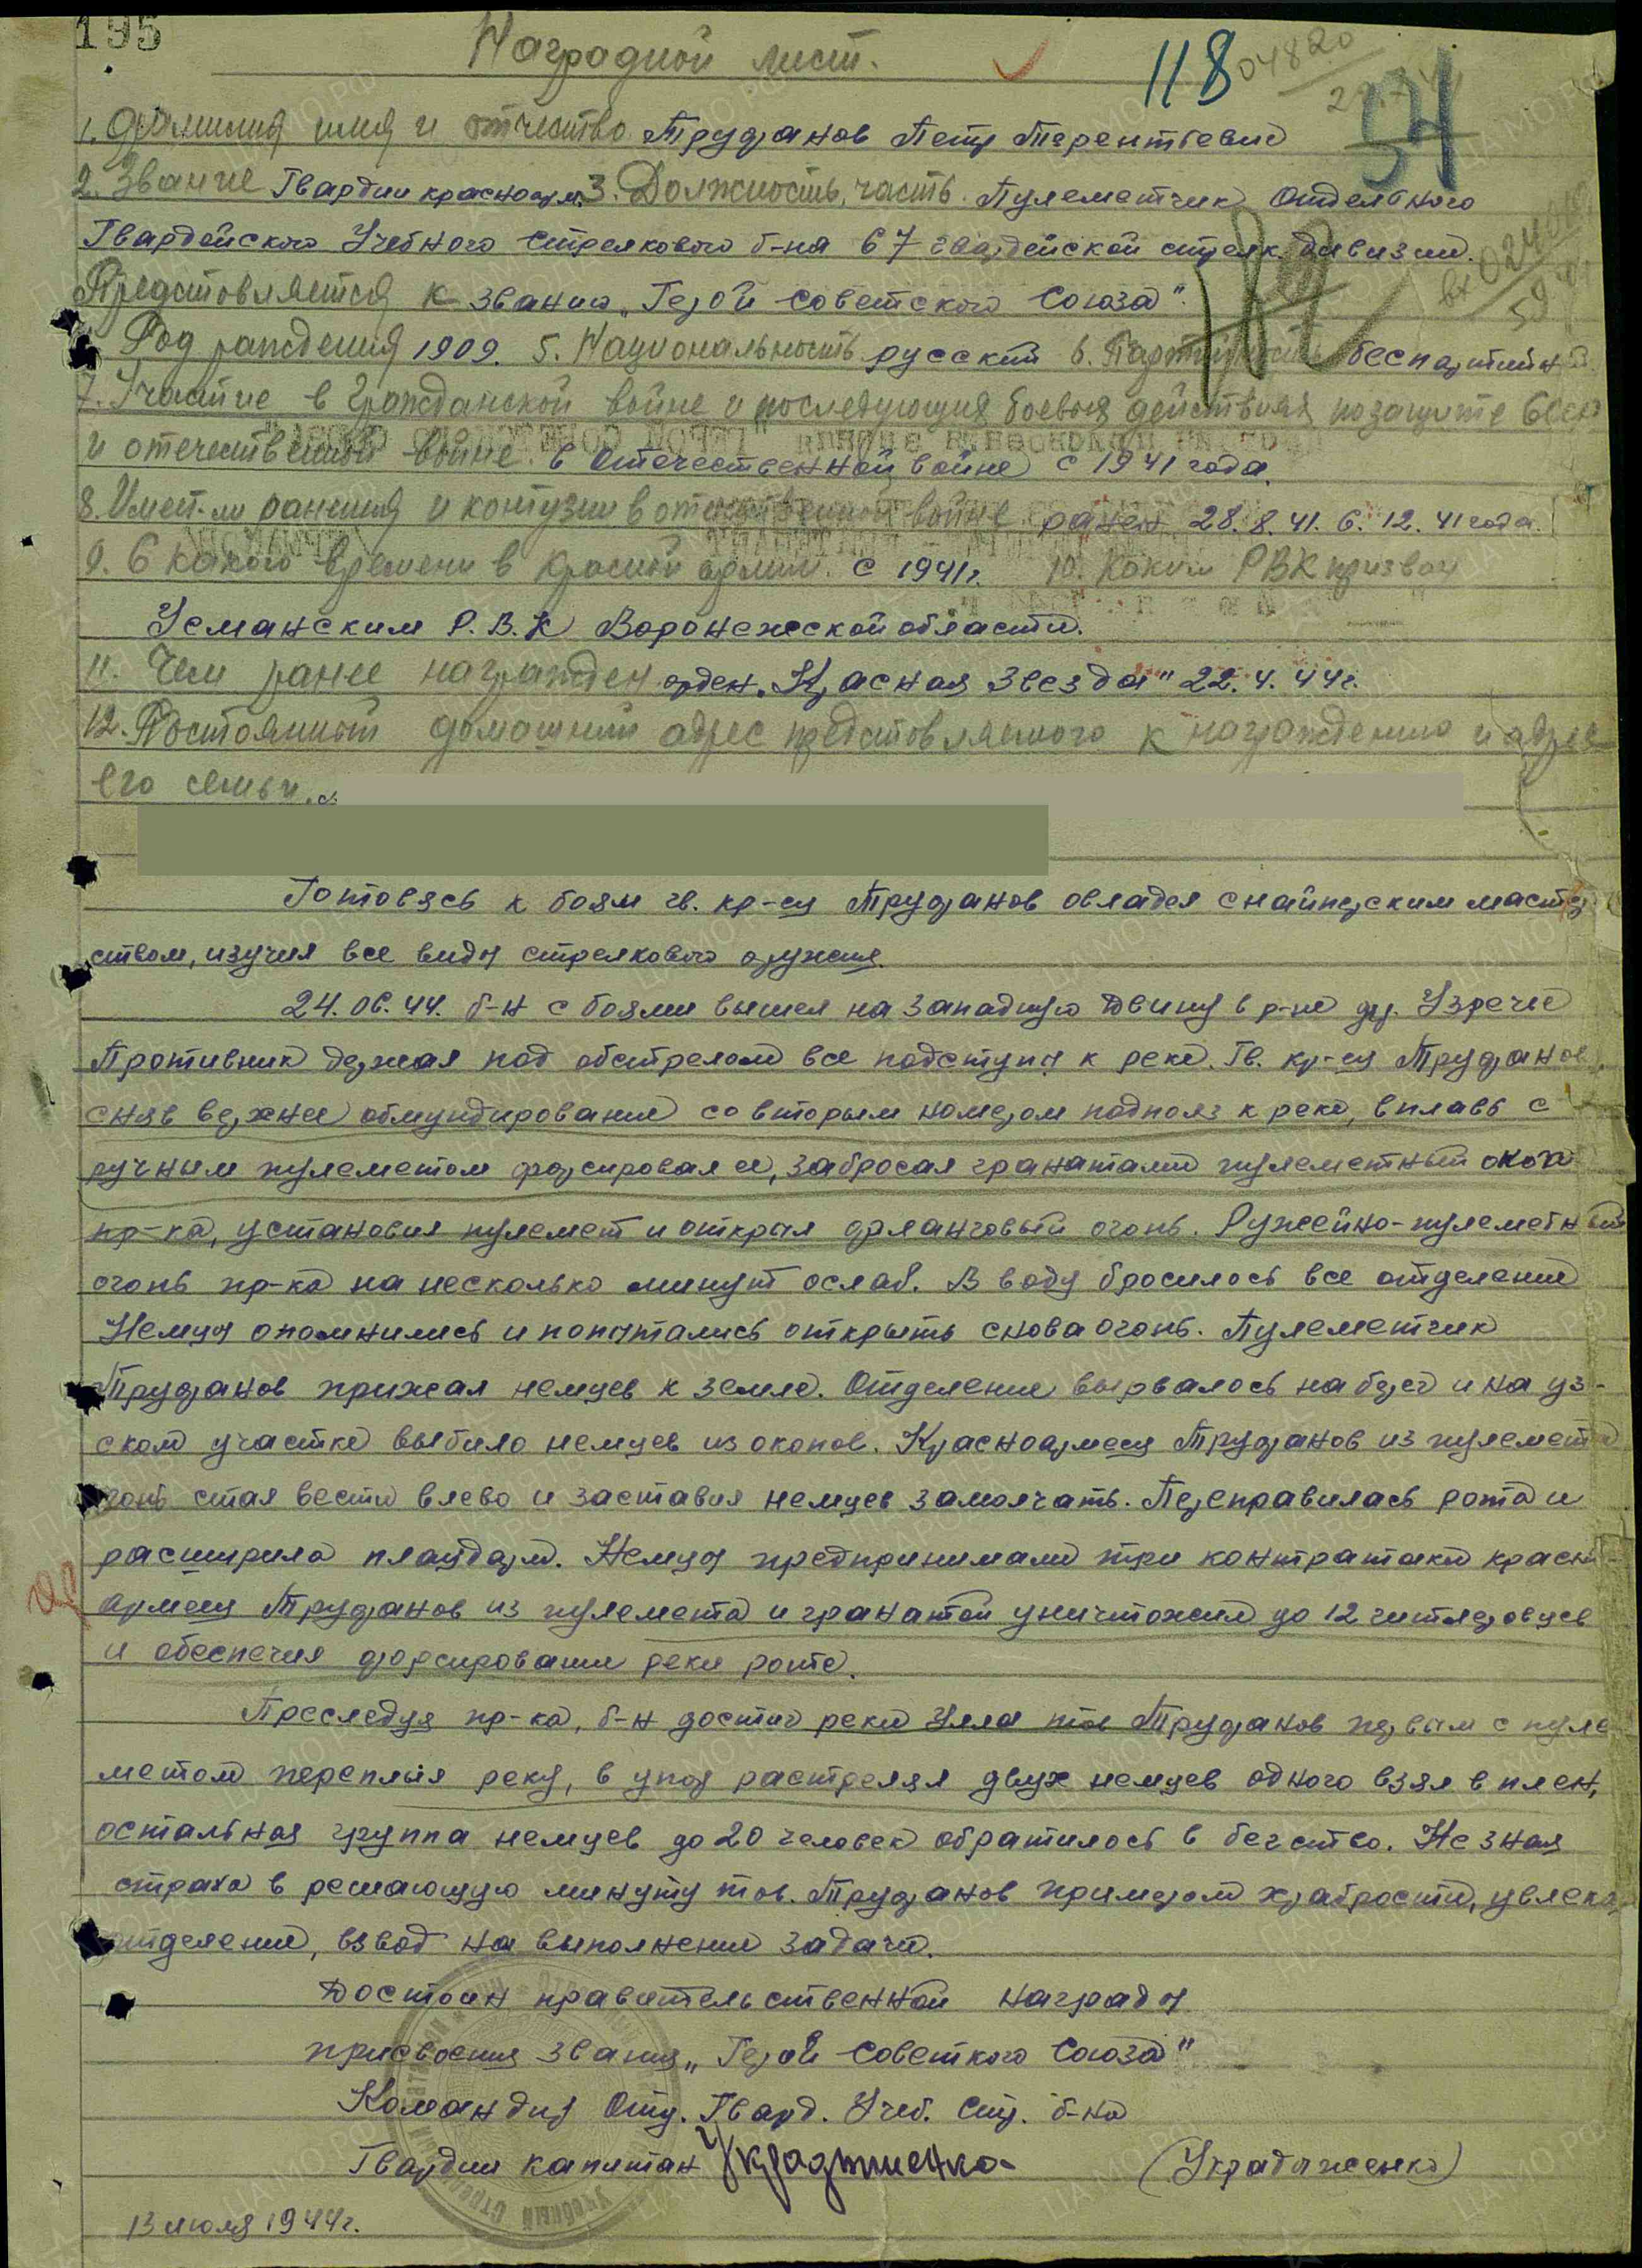 195
Наградной лист.
118
04820
54
1. Фамилия имя и отчество Труфанов Петр Терентьевич
2. Звание Гвардии красноарм. 3. Должность, часть. Пулеметчик Отдельного
Гвардейского Учебного Стрелкового б-на 67 гвардейской стрелк. дивизии.
Представляется к званию „Герой Советского Союза".
4. Год рождения 1909. 5. Национальность русский 6. Партийность беспартийный
7. Участие в гражданской войне и последующих боевых действиях по защите СССР
и отечественной войне. в Отечественной войне с 1941 года.
8. Имеет-ли ранения и контузии в отечественной войне ранен 28.8.41. 6.12.41 года.
9. С какого времени в красной армии. с 1941 г. 10. Каким РВК призван
Усманским Р.В.К Воронежской области.
11. Чем ранее награжден орден „Красная Звезда" 22.4.44 г.
12. Постоянный домашний адрес представляемого к награждению и адрес
его семьи.
Готовясь к боям гв. кр-ец Труфанов овладел снайперским мастер
ством, изучил все виды стрелкового оружия.
24.06.44. б-н с боями вышел на Западную Двину в р-не дер. Узречье
Противник держал под обстрелом все подступы к реке. Гв. кр-ец Труфанов,
сняв верхнее обмундирование со вторым номером подполз к реке, вплавь с
ручным пулеметом форсировал ее, забросал гранатами пулеметный окоп
пр-ка, установил пулемет и открыл фланговый огонь. Ружейно-пулеметный
огонь пр-ка на несколько минут ослаб. В воду бросилось все отделение
Немцы опомнились и попытались открыть снова огонь. Пулеметчик
Труфанов прижал немцев к земле. Отделение вырвалось на берег и на уз-
ском участке выбило немцев из окопов. Красноармеец Труфанов из пулемета
огонь стал вести влево и заставил немцев замолчать. Переправилась рота и
расширила плацдарм. Немцы предпринимали три контратаки красно-
армеец Труфанов из пулемета и гранатой уничтожил до 12 гитлеровцев
и обеспечил форсирование реки роте.
Преследуя пр-ка, б-н достиг реки Улла тов Труфанов первым с пуле
метом переплыл реку, в упор расстрелял двух немцев одного взял в плен,
остальная группа немцев до 20 человек обратилось в бегство. Не зная
страха в решающую минуту тов. Труфанов примером храбрости, увлекал
отделение, взвод на выполнение задачи.
Достоин правительственной награды
присвоения звания „Герой Советкого Союза"
Командир Отд. Гвард. Учеб. Стр. б-на
Гвардии капитан Украдыженко (Украдыженко)
13 июля 1944 г.